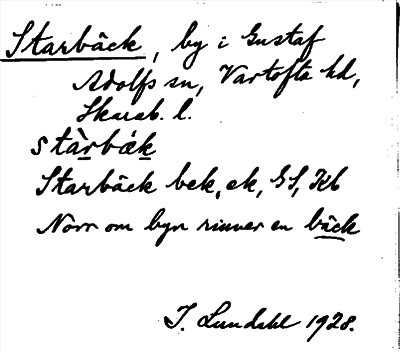 Starbäck, by i Gustaf
Adolfs sn, Vartofta hd,
Skarab. l.
stàrbák
Starbäck bek, ek, GS, Kb
Norr om byn rinner en bäck
I. Lundahl 1928.